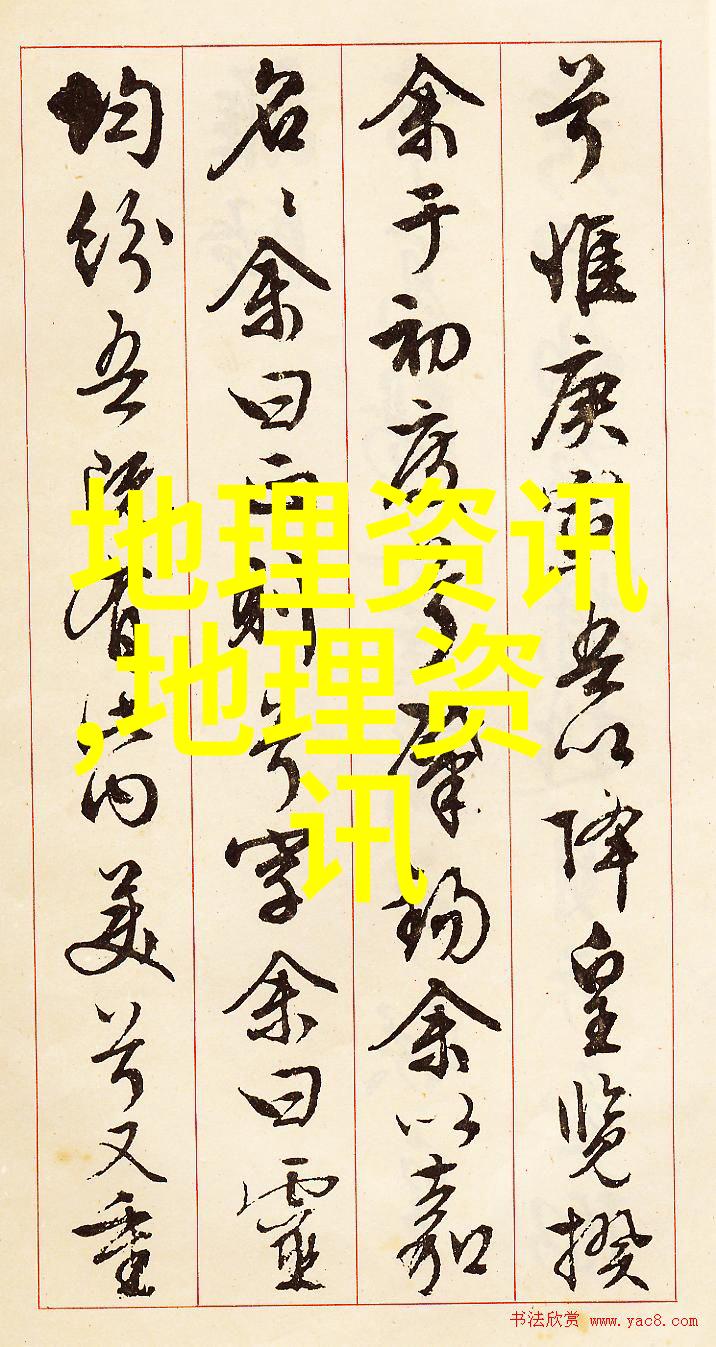 兮惟庚寅吾以降皇覽揆
余于初度兮肇錫余以嘉
名〻余曰正則兮字余曰靈
均紛吾既有此内美兮又重
地理资讯
,地理资
讯
书法欣赏 www.yac8.com